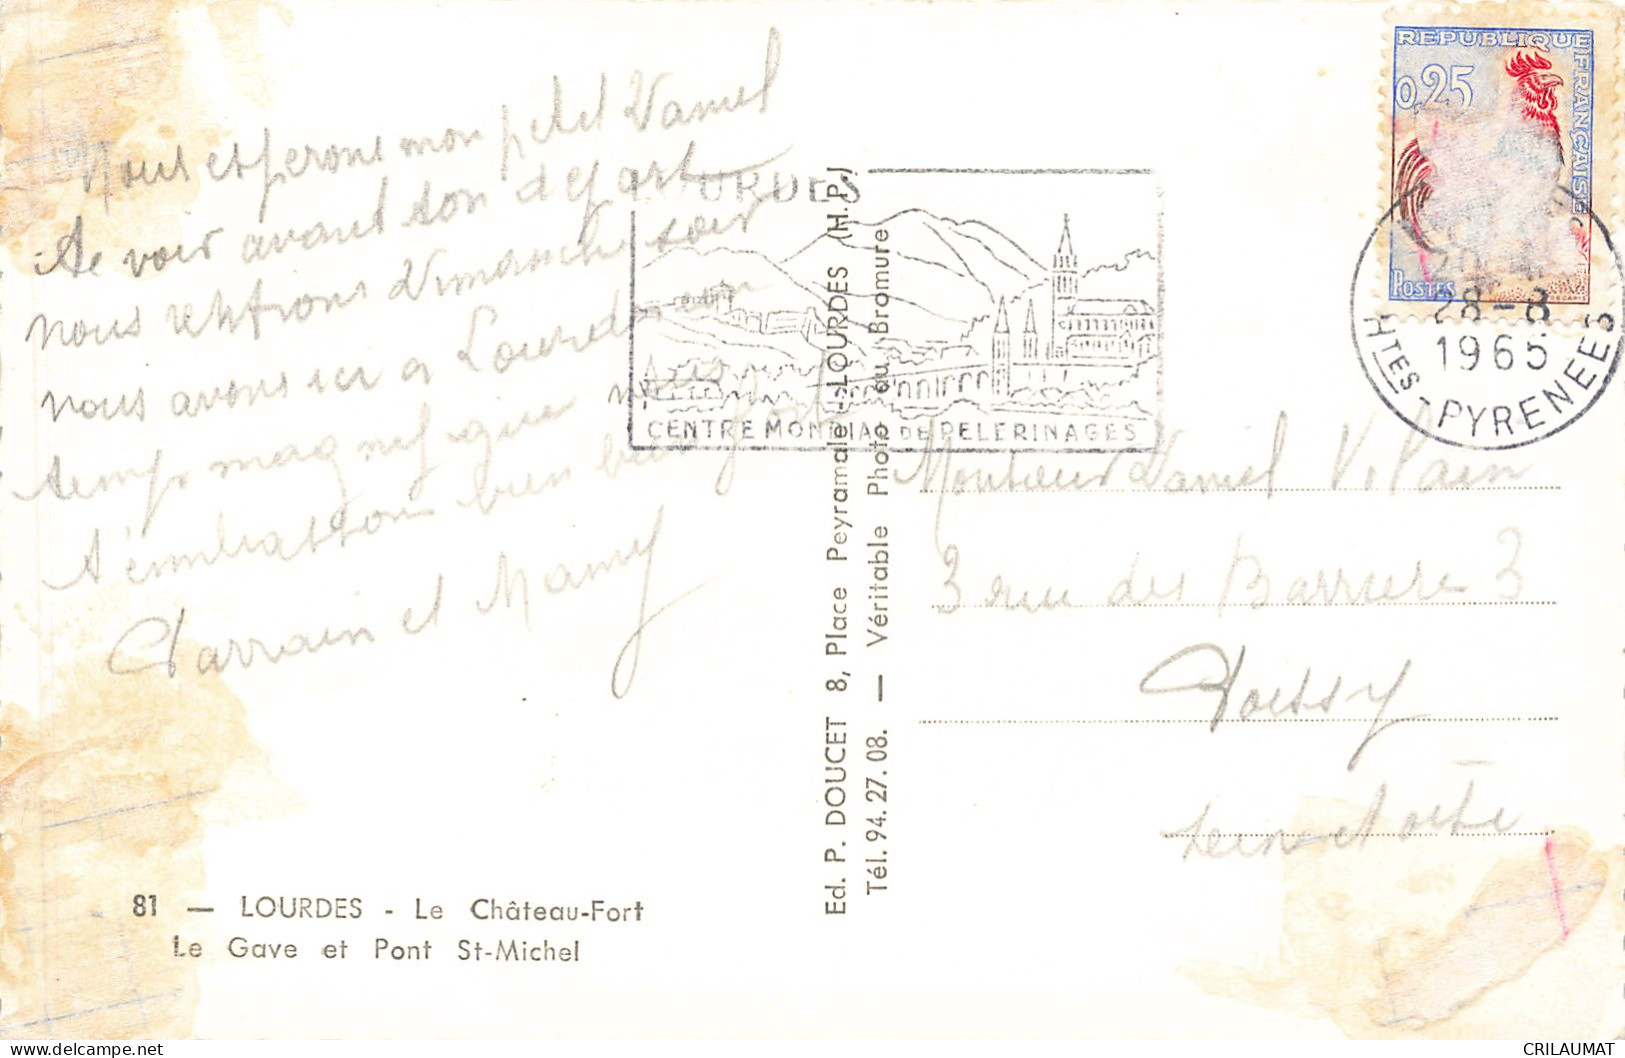 Nous esperons mon petit Daniel
te voir avant ton depart
nous rentrons Dimanche soir
nous avons ici a Lourdes un
temps magnifique nous
t'embrassons bien bien fort
Parrain et Mamy
81 — LOURDES - Le Château-Fort
Le Gave et Pont St-Michel
Ed. P. DOUCET 8, Place Peyramale - LOURDES (H.P.)
Tél. 94.27.08. — Véritable Photo au Bromure
LOURDES
CENTRE MONDIAL DE PELERINAGES
REPUBLIQUE FRANÇAISE
0,25
POSTES
DECARIS
28-8
1965
HTES-PYRENEES
Monsieur Daniel Vilain
3 rue des Barriere 3
Poissy
Seine et Oise
CRILAUMAT